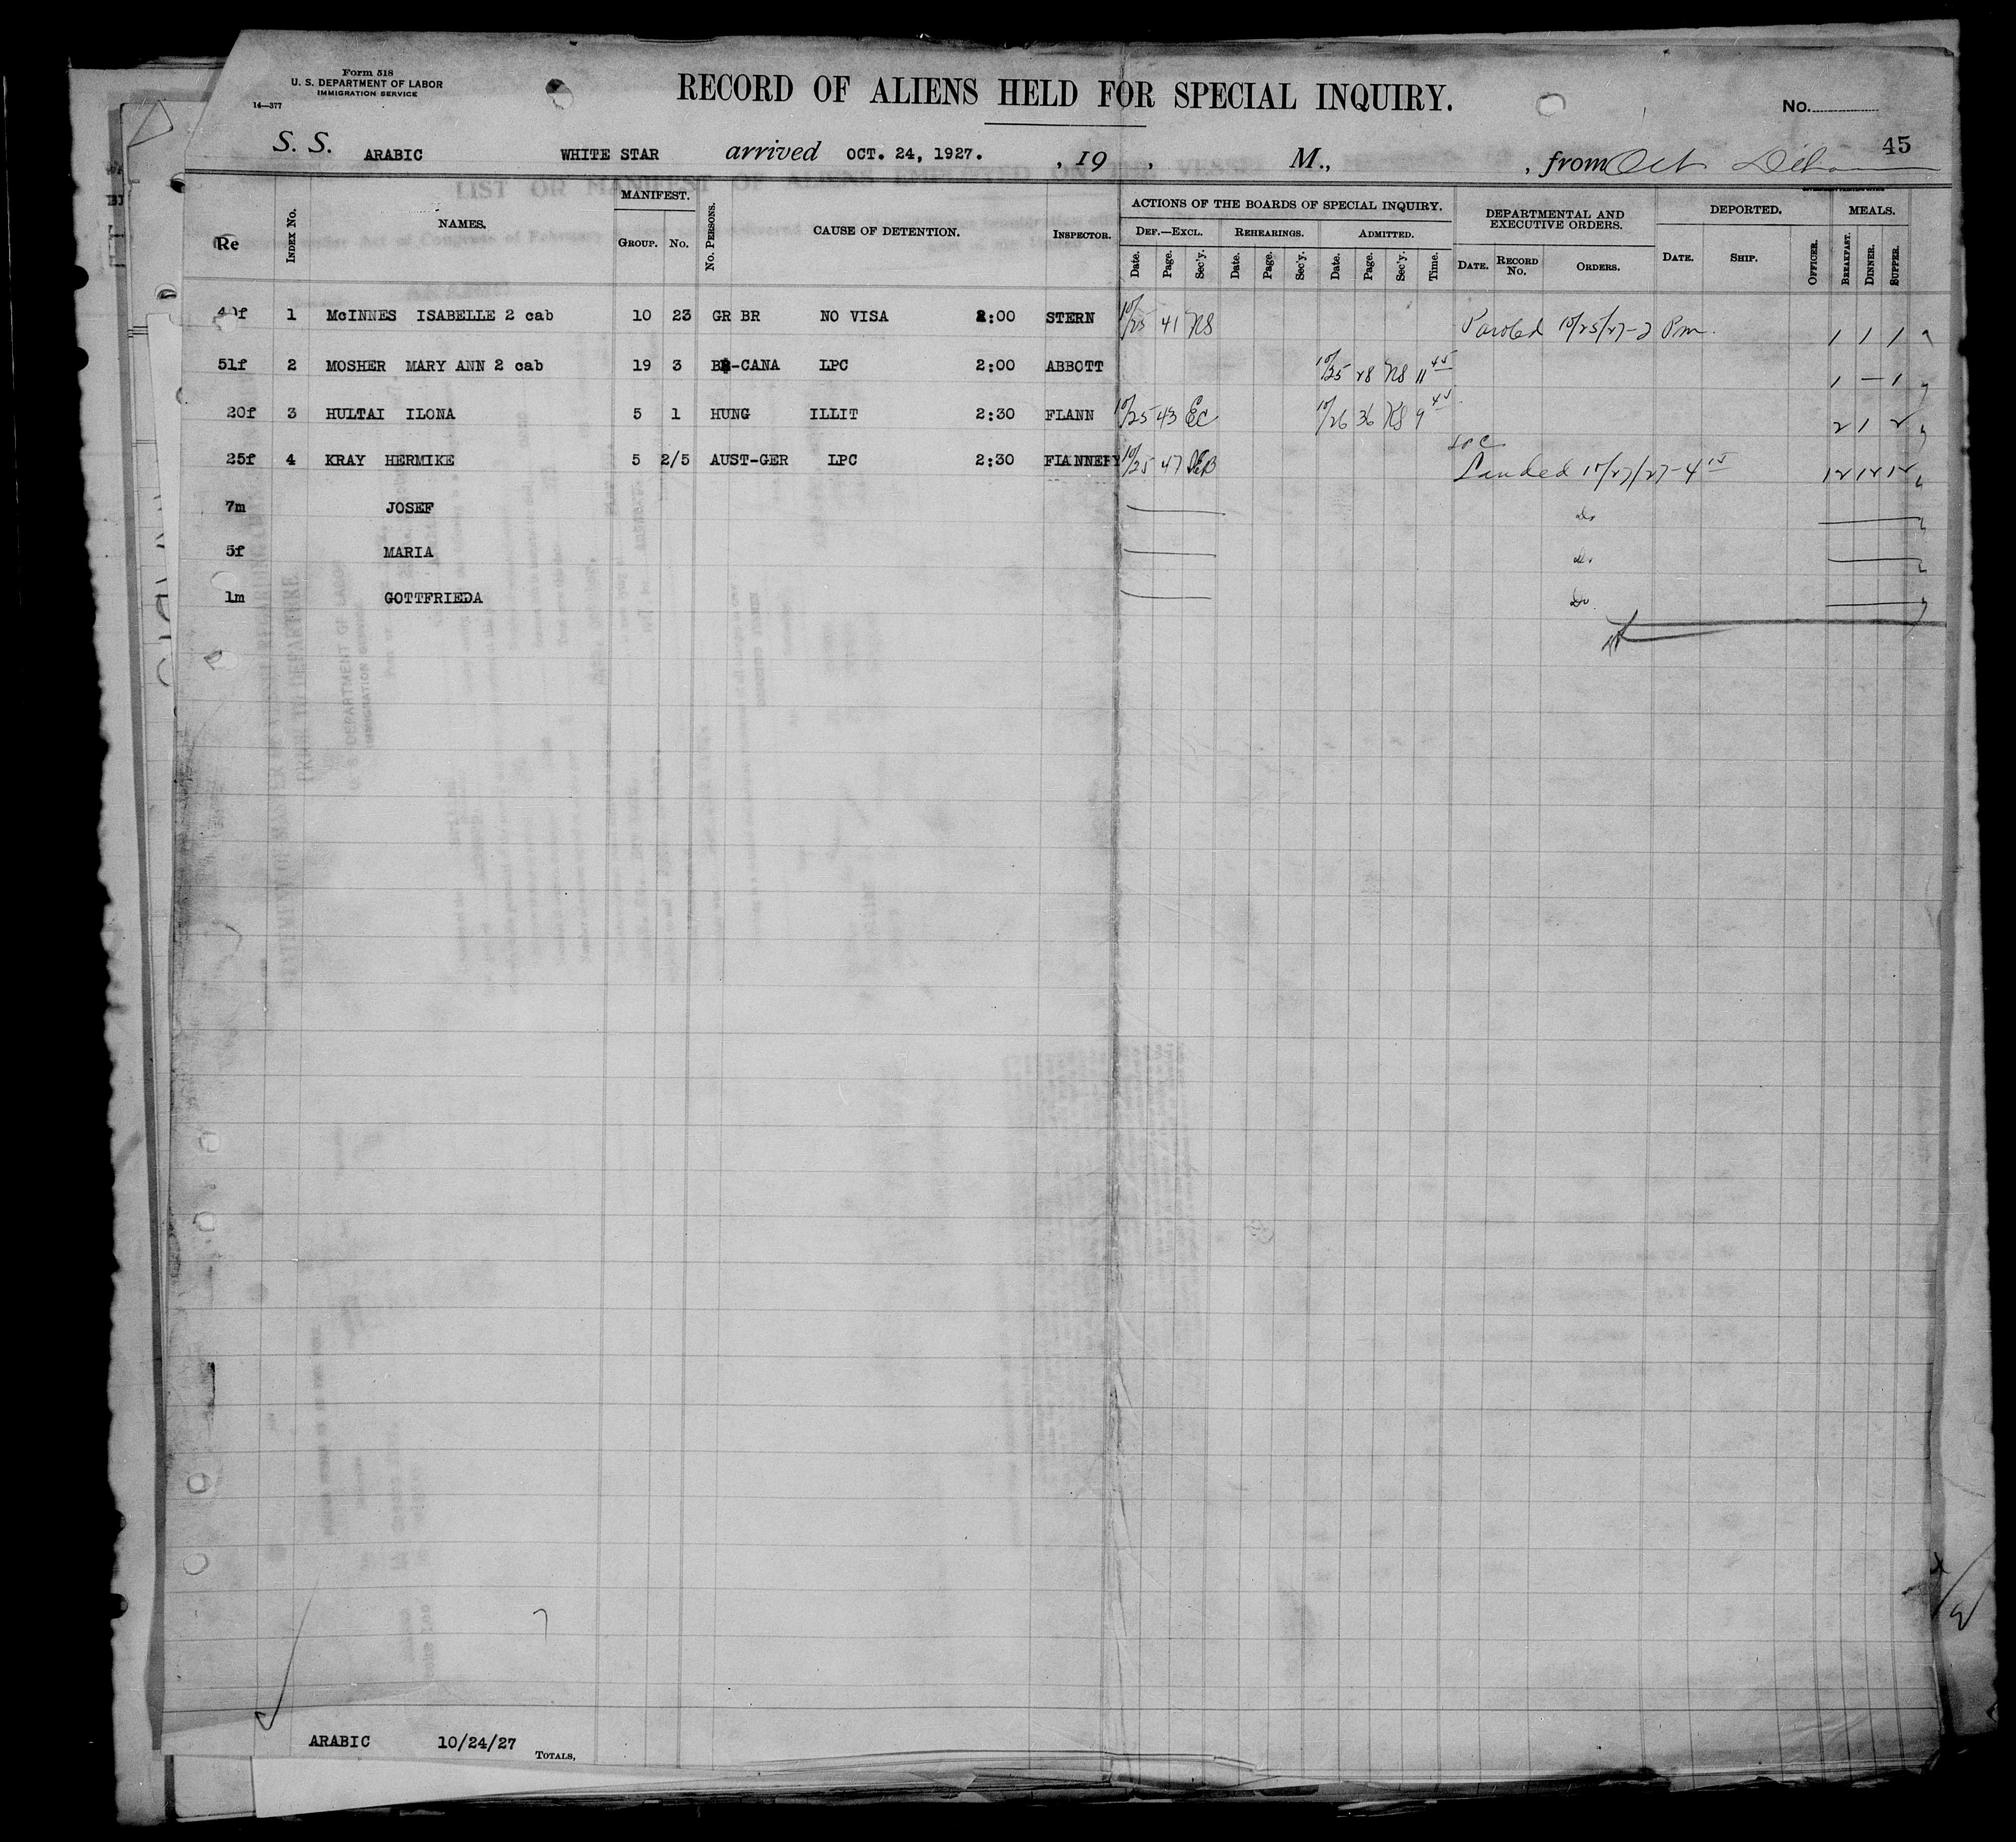 Form 518
U. S. DEPARTMENT OF LABOR
IMMIGRATION SERVICE
14—377
RECORD OF ALIENS HELD FOR SPECIAL INQUIRY.
No.
45
S. S. ARABIC WHITE STAR arrived OCT. 24, 1927. , 19 , M., , from Oct
MANIFEST. ACTIONS OF THE BOARDS OF SPECIAL INQUIRY. DEPARTMENTAL AND EXECUTIVE ORDERS. DEPORTED. MEALS.
Re INDEX No. NAMES. GROUP. No. No. PERSONS. CAUSE OF DETENTION. INSPECTOR. DEF.—EXCL. REHEARINGS. ADMITTED.
Date. Page. Sec'y. Date. Page. Sec'y. Date. Page. Sec'y. Time. DATE. RECORD No. ORDERS. DATE. SHIP. OFFICER. BREAKFAST. DINNER. SUPPER.
40f 1 McINNES ISABELLE 2 cab 10 23 GR BR NO VISA 2:00 STERN 10/25 41 NS Paroled 10/25/27-2 Pm. 1 1 1
51f 2 MOSHER MARY ANN 2 cab 19 3 BR-CANA LPC 2:00 ABBOTT 10/25 28 NS 11 45 1 — 1
20f 3 HULTAI ILONA 5 1 HUNG ILLIT 2:30 FLANN 10/25 43 EC 10/26 36 9 45 2 1 2
25f 4 KRAY HERMIKE 5 2/5 AUST-GER LPC 2:30 FLANNERY 10/25 47 Landed 10/27/27-4 15 12 12 12
7m JOSEF Do
5f MARIA Do
1m GOTTFRIEDA Do
ARABIC 10/24/27
TOTALS,